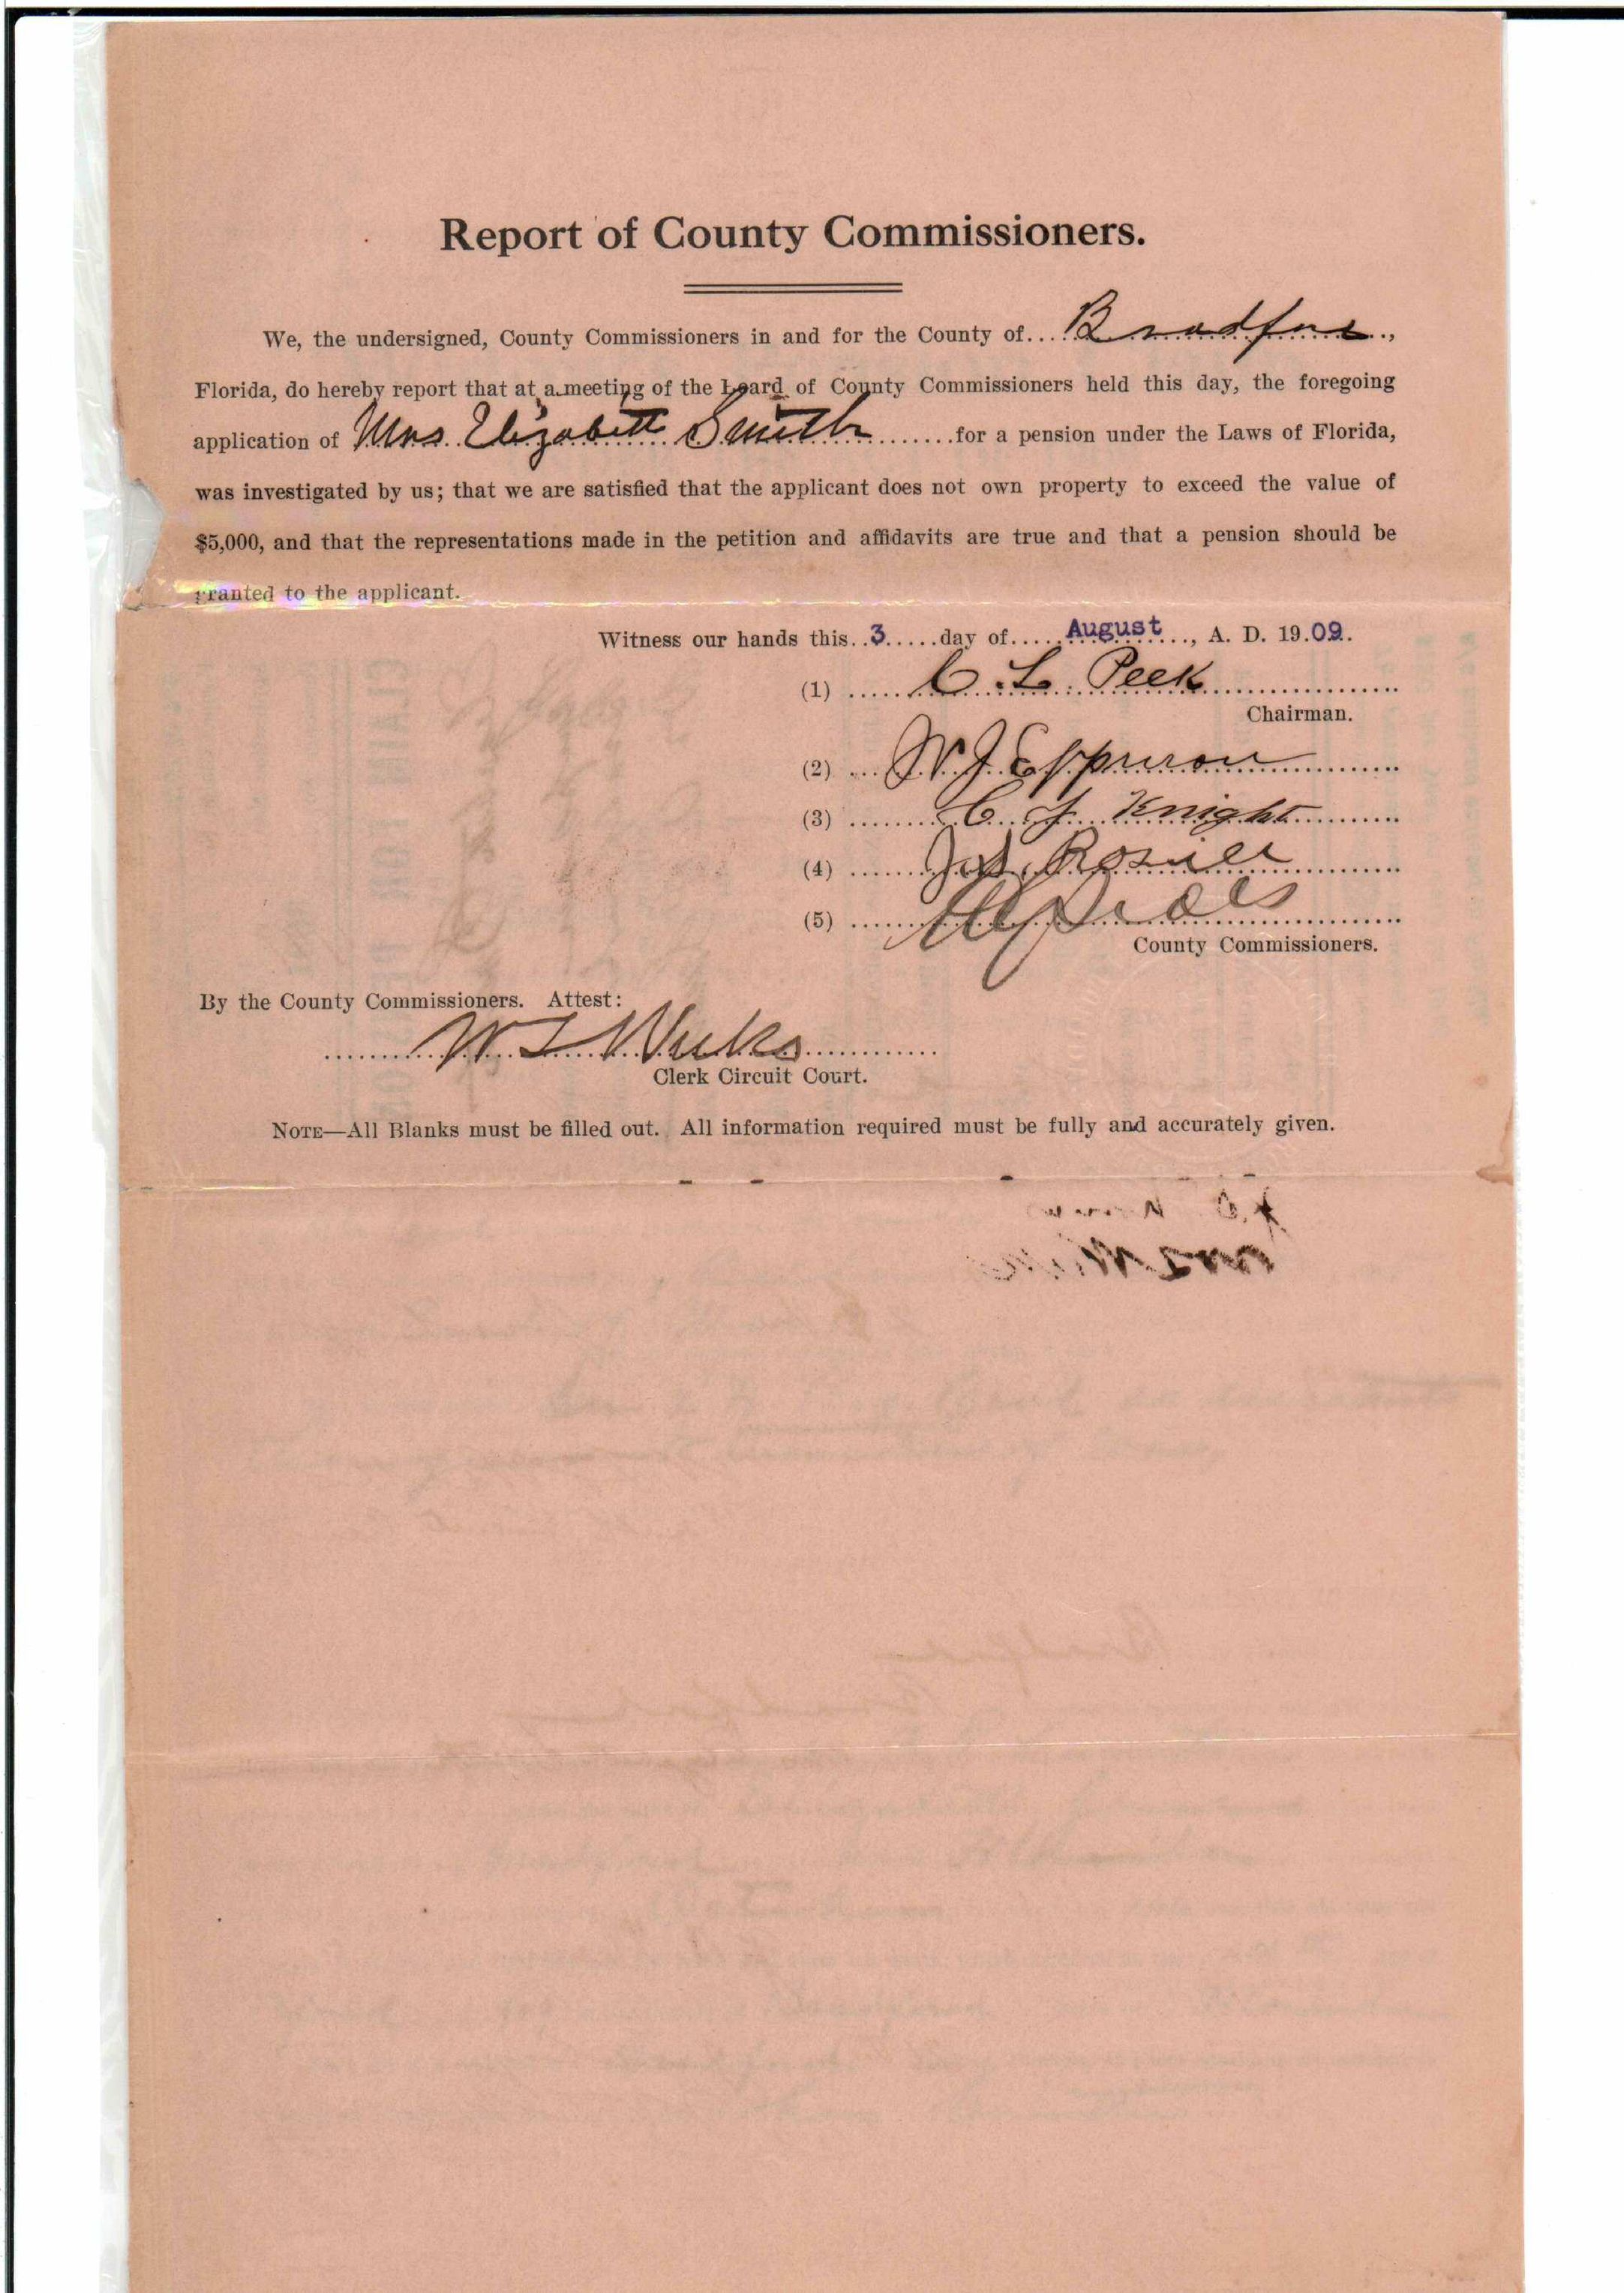 Report of County Commissioners.
We, the undersigned, County Commissioners in and for the County of Bradford,
Florida, do hereby report that at a meeting of the Board of County Commissioners held this day, the foregoing
application of Mrs Elizabeth Smith for a pension under the Laws of Florida,
was investigated by us; that we are satisfied that the applicant does not own property to exceed the value of
$5,000, and that the representations made in the petition and affidavits are true and that a pension should be
granted to the applicant.
Witness our hands this 3 day of August, A. D. 1909.
(1) C. L. Peek
Chairman.
(2) W J
(3) C. J. Knight
(4)
(5)
County Commissioners.
By the County Commissioners. Attest:
W L Weeks
Clerk Circuit Court.
NOTE—All Blanks must be filled out. All information required must be fully and accurately given.